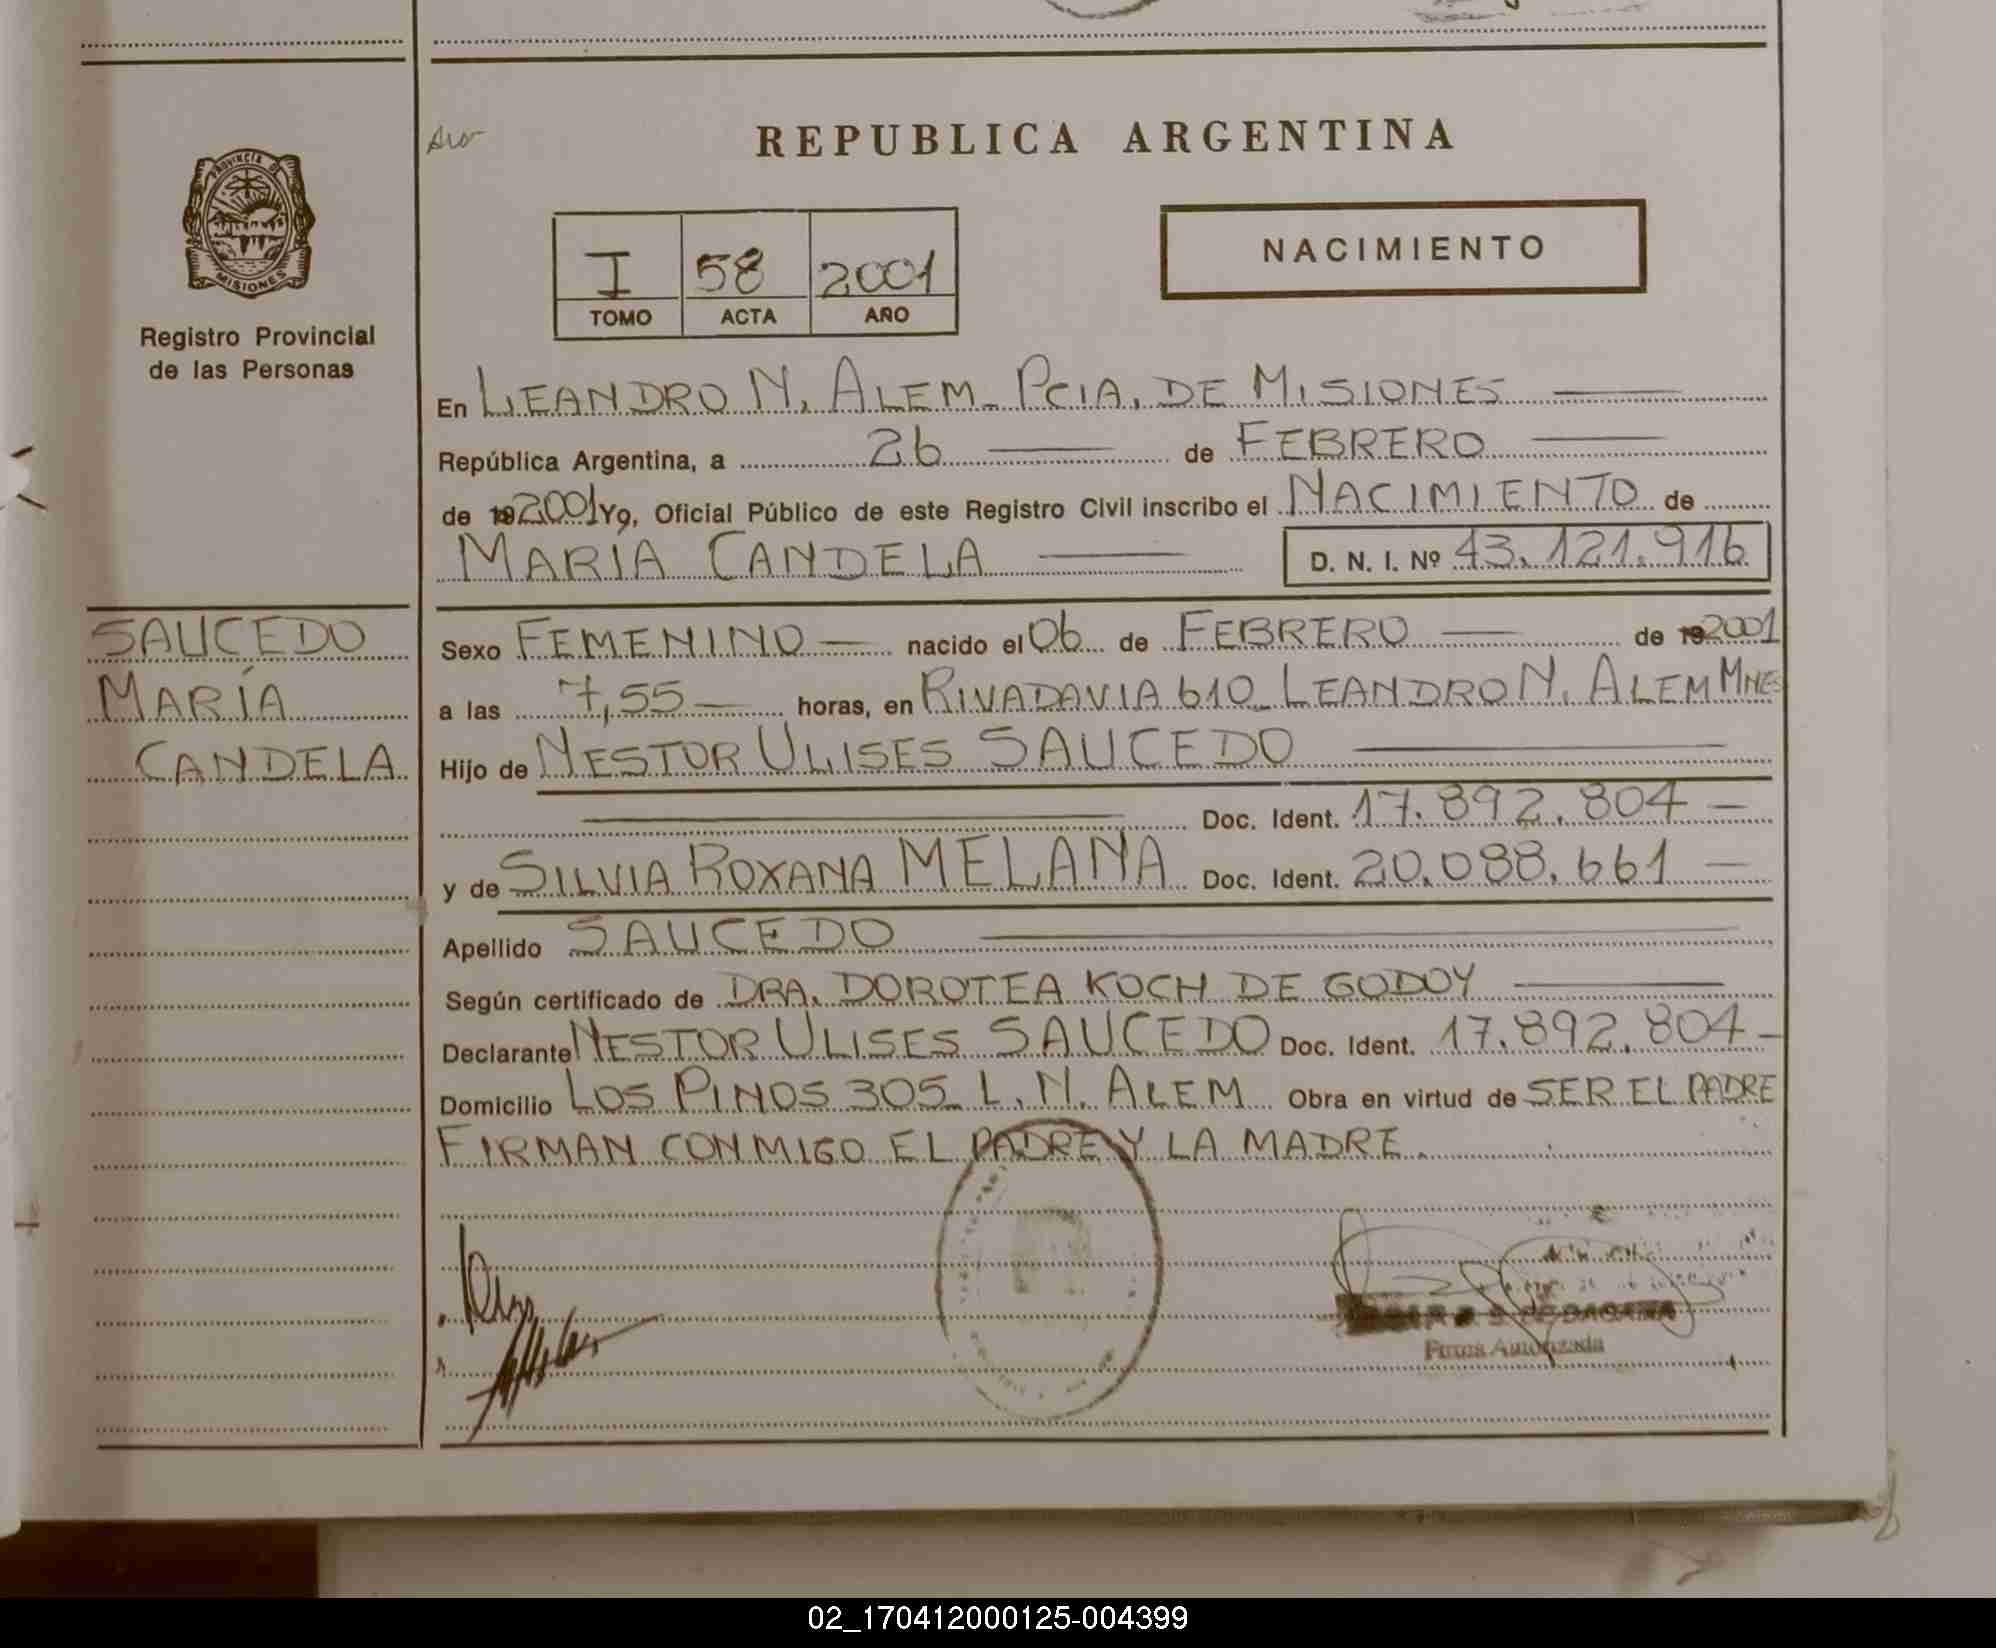 REPUBLICA ARGENTINA
PROVINCIA DE
MISIONES
Registro Provincial
de las Personas
I 58 2001
TOMO ACTA AÑO
NACIMIENTO
En LEANDRO N. ALEM - PCIA. DE MISIONES
República Argentina, a 26 de FEBRERO
de 19 2001 Yo, Oficial Público de este Registro Civil inscribo el NACIMIENTO de
MARÍA CANDELA D. N. I. Nº 43.121.916
SAUCEDO
MARÍA
CANDELA
Sexo FEMENINO nacido el 06 de FEBRERO de 19 2001
a las 7,55 horas, en RIVADAVIA 610 - LEANDRO N. ALEM MNES
Hijo de NESTOR ULISES SAUCEDO
Doc. Ident. 17.892.804
y de SILVIA ROXANA MELANA Doc. Ident. 20.088.661
Apellido SAUCEDO
Según certificado de DRA. DOROTEA KOCH DE GODOY
Declarante NESTOR ULISES SAUCEDO Doc. Ident. 17.892.804
Domicilio LOS PINOS 305 - L. N. ALEM Obra en virtud de SER EL PADRE
FIRMAN CONMIGO EL PADRE Y LA MADRE.
Firma Autorizada
02_170412000125-004399